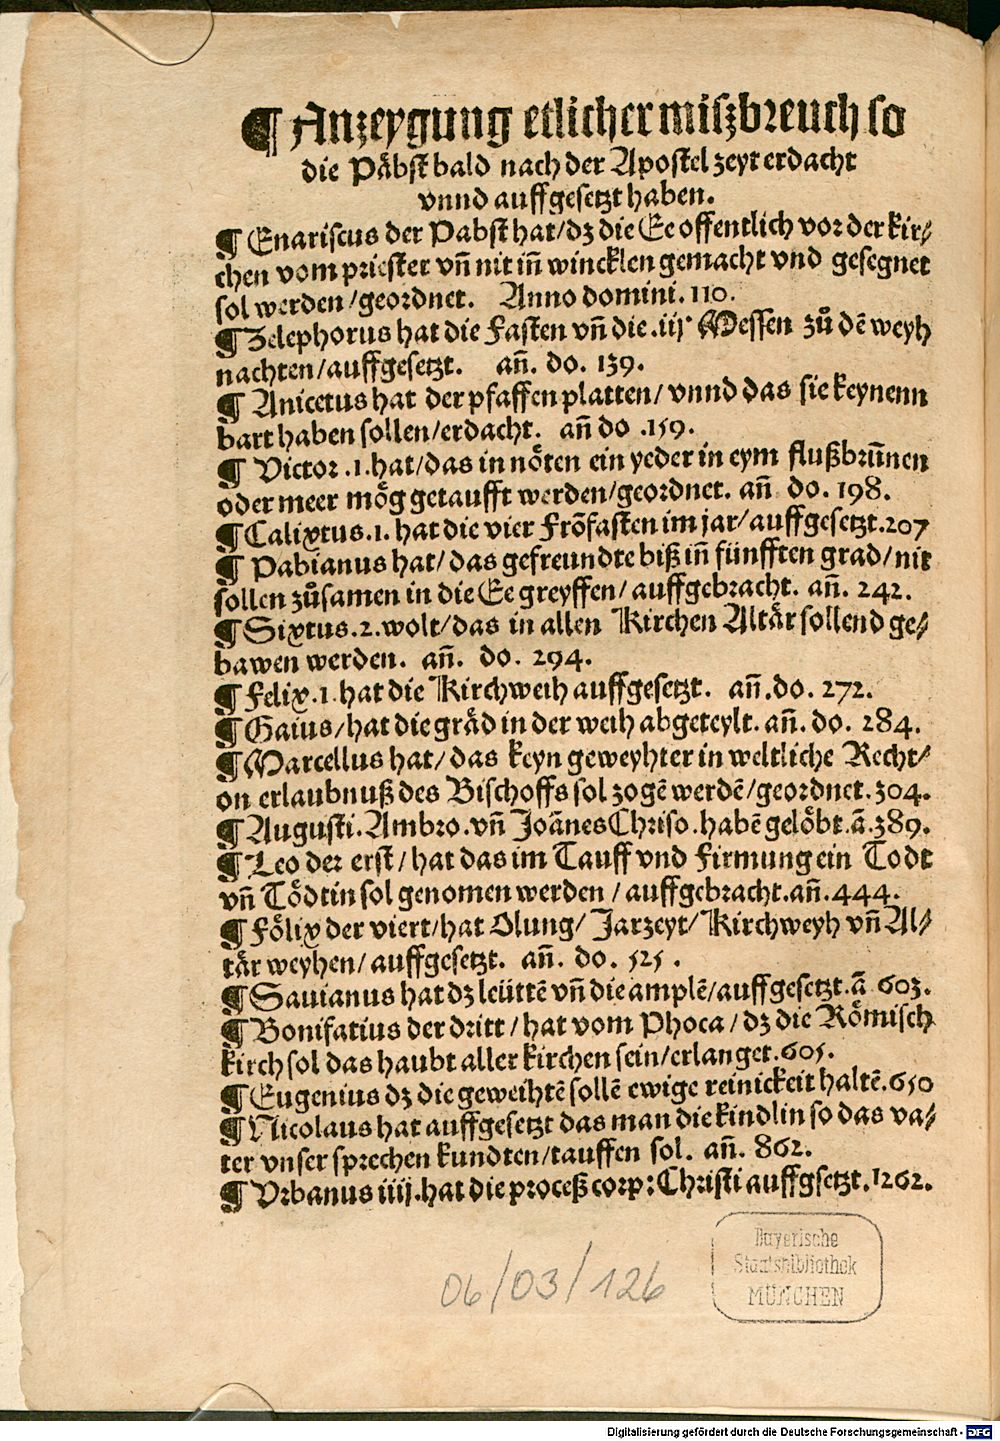 ¶ Anzeygung etlicher miſzbreuch ſo
die Päbſt bald nach der Apoſtel zeyt erdacht
vnnd auffgeſetzt haben.
¶ Enariſcus der Pabſt hat/dz die Ee offentlich vor der kir⸗
chen vom prieſter vn̄ nit in̄ wincklen gemacht vnd geſegnet
ſol werden/geordnet. Anno domini.110.
¶ Zelephorus hat die Faſten vn̄ die .iij. Meſſen zů dē weyh
nachten/auffgeſetzt. an̄. do. 139.
¶ Anicetus hat der pfaffen platten/ vnnd das ſie keynenn
bart haben ſollen/erdacht. an̄ do .159.
¶ Victor .1.hat/das in nöten ein yeder in eym flußbrūnen
oder meer mög getaufft werden/geordnet. an̄ do. 198.
¶ Calixtus.1. hat die vier Frōfaſten im jar/auffgeſetzt.207
¶ Pabianus hat/das gefreundte biß in̄ fünfften grad/nit
ſollen zůſamen in die Ee greyffen/ auffgebracht. an̄. 242.
¶ Sixtus.2.wolt/das in allen Kirchen Altär ſollend ge⸗
bawen werden. an̄. do. 294.
¶ Felix.1.hat die Kirchweih auffgeſetzt. an̄.do. 272.
¶ Gaius/hat die gräd in der weih abgeteylt. an̄. do. 284.
¶ Marcellus hat/das keyn geweyhter in weltliche Recht/
on erlaubnuß des Biſchoffs ſol zogē werdē/geordnet.304.
¶ Auguſti.Ambro.vn̄ Joānes Chriſo.habē gelöbt.ā.389.
¶ Leo der erſt/hat das im Tauff vnd Firmung ein Todt
vn̄ Tödtin ſol genomen werden/auffgebracht.an̄.444.
¶ Fölix der viert/hat Olung/ Jarzeyt/Kirchweyh vn̄ Al⸗
tär weyhen/auffgeſetzt. an̄. do. 525.
¶ Sauianus hat dz leüttē vn̄ die amplē/auffgeſetzt.ā 603.
¶ Bonifatius der dritt/hat vom Phoca/dz die Römiſch
kirch ſol das haubt aller kirchen ſein/erlanget.605.
¶ Eugenius dz die geweihtē ſollē ewige reinickeit haltē.650
¶ Nicolaus hat auffgeſetzt das man die kindlin ſo das va⸗
ter vnſer ſprechen kundten/tauffen ſol. an̄. 862.
¶ Vrbanus iiij.hat die proceß corp:Chriſti auffgſetzt.1262.
06/03/126
Bayerische
Staatsbibliothek
MÜNCHEN
Digitalisierung gefördert durch die Deutsche Forschungsgemeinschaft - DFG